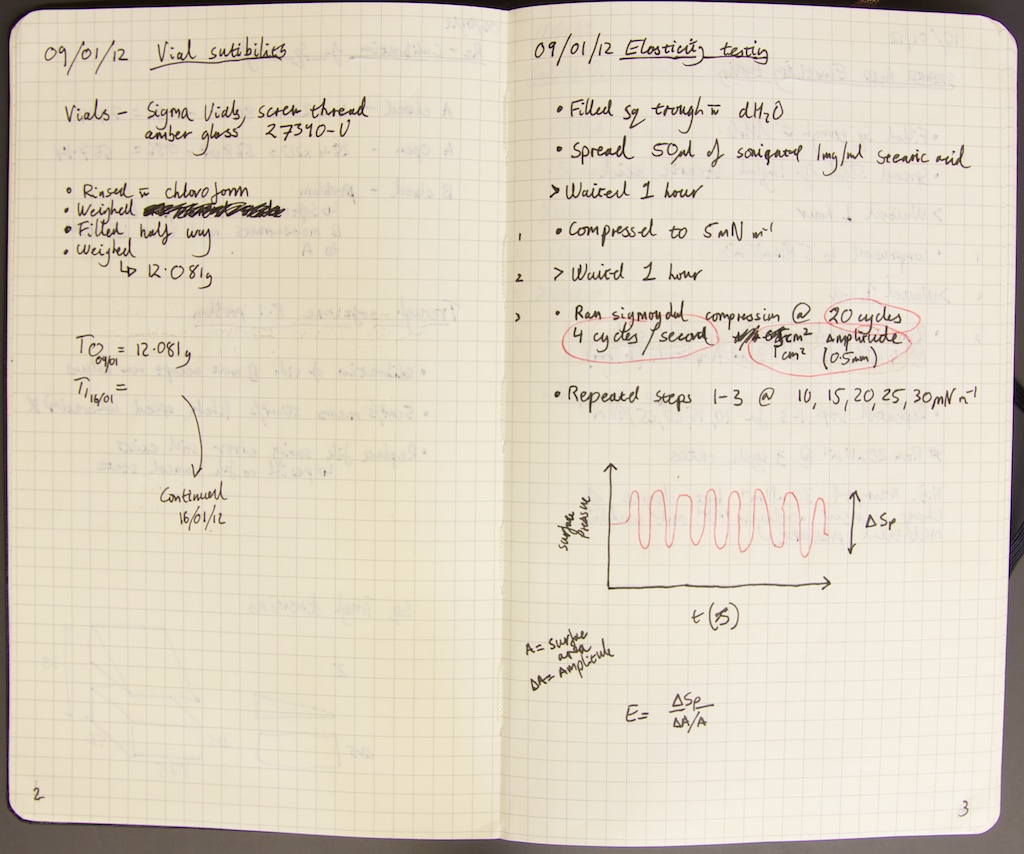 09/01/12 Vial sutibility
Vials - Sigma Vials, screw thread
amber glass 27390-U
• Rinsed w̄ chloroform
• Weighed
• Filled half way
• Weighed
↳ 12.081g
T0 09/01 = 12.081g
T1 16/01 =
Continued
16/01/12
2
09/01/12 Elasticity testing
• Filled sq trough w̄ dH2O
• Spread 50µl of 1mg/ml stearic acid
> Waited 1 hour
1 • Compressed to 5mN m⁻¹
2 > Waited 1 hour
3 • Ran sigmoydal compression @ 20 cycles
4 cycles/second cm² Amplitude
1cm² (0.5mm)
• Repeated steps 1-3 @ 10, 15, 20, 25, 30mN m⁻¹
Surface
Pressure
ΔSp
t (s)
A = surface
area
ΔA = Amplitude
E = ΔSp
ΔA/A
3